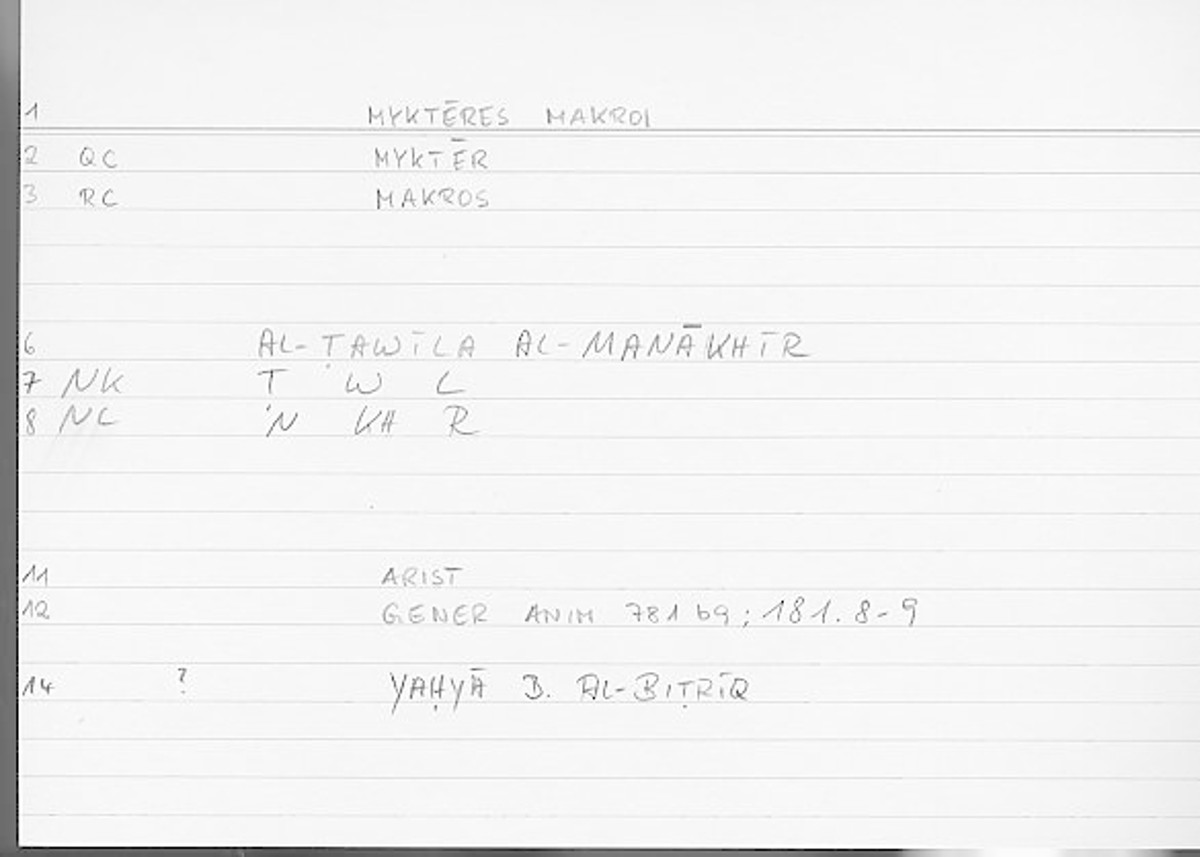 1 MYKTĒRES MAKROI
2 QC MYKTĒR
3 RC MAKROS
6 AL-ṬAWĪLA AL-MANĀKHĪR
7 NK Ṭ W L
8 NL N KH R
11 ARIST
12 GENER ANIM 781 b9; 181.8-9
14 ? YAḤYĀ B. AL-BIṬRĪQ